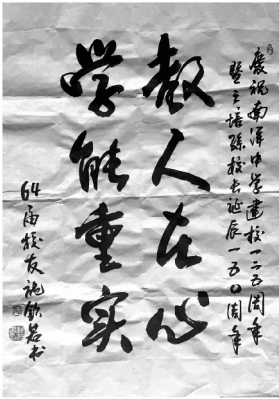 慶祝南洋中学建校一二五周年
暨王培孫校长诞辰一五〇周年
教人在心
学能重实
64届校友施
书